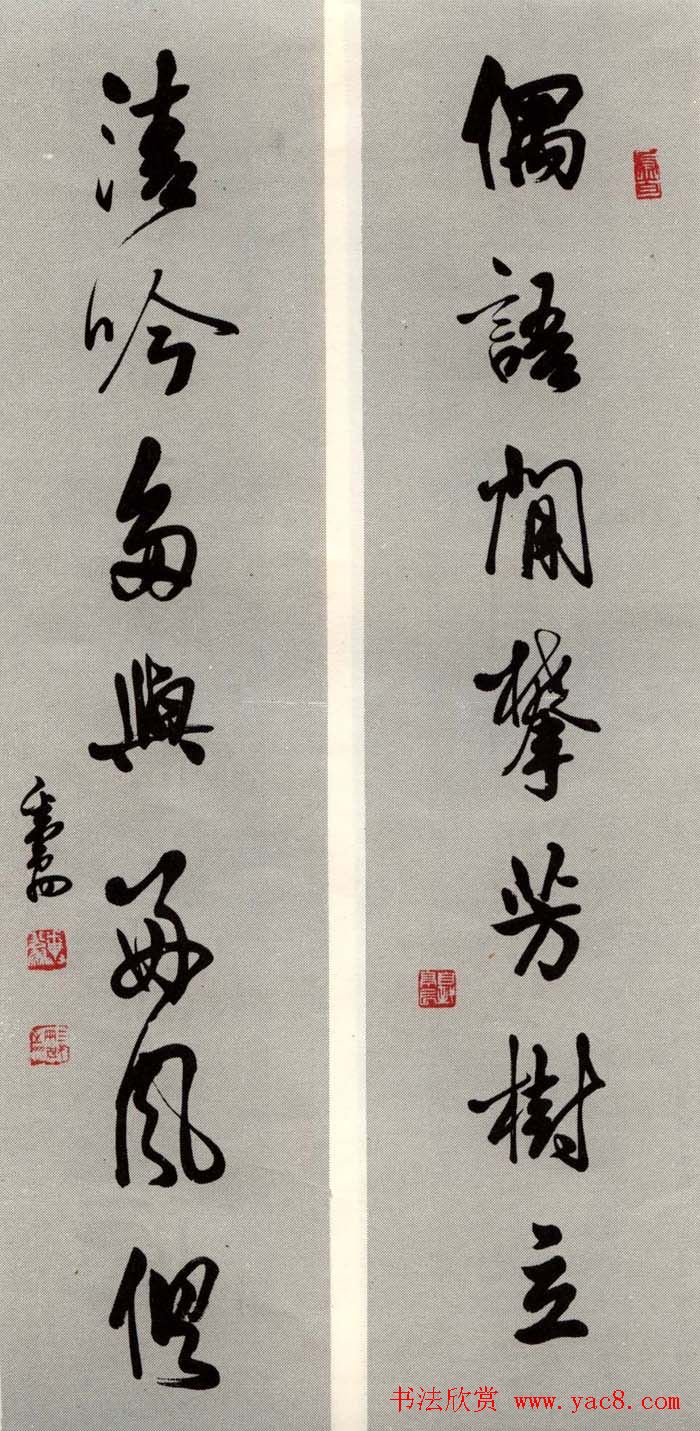 偶語閒攀芳樹立
清吟多與好風俱
书法欣赏 www.yac8.com